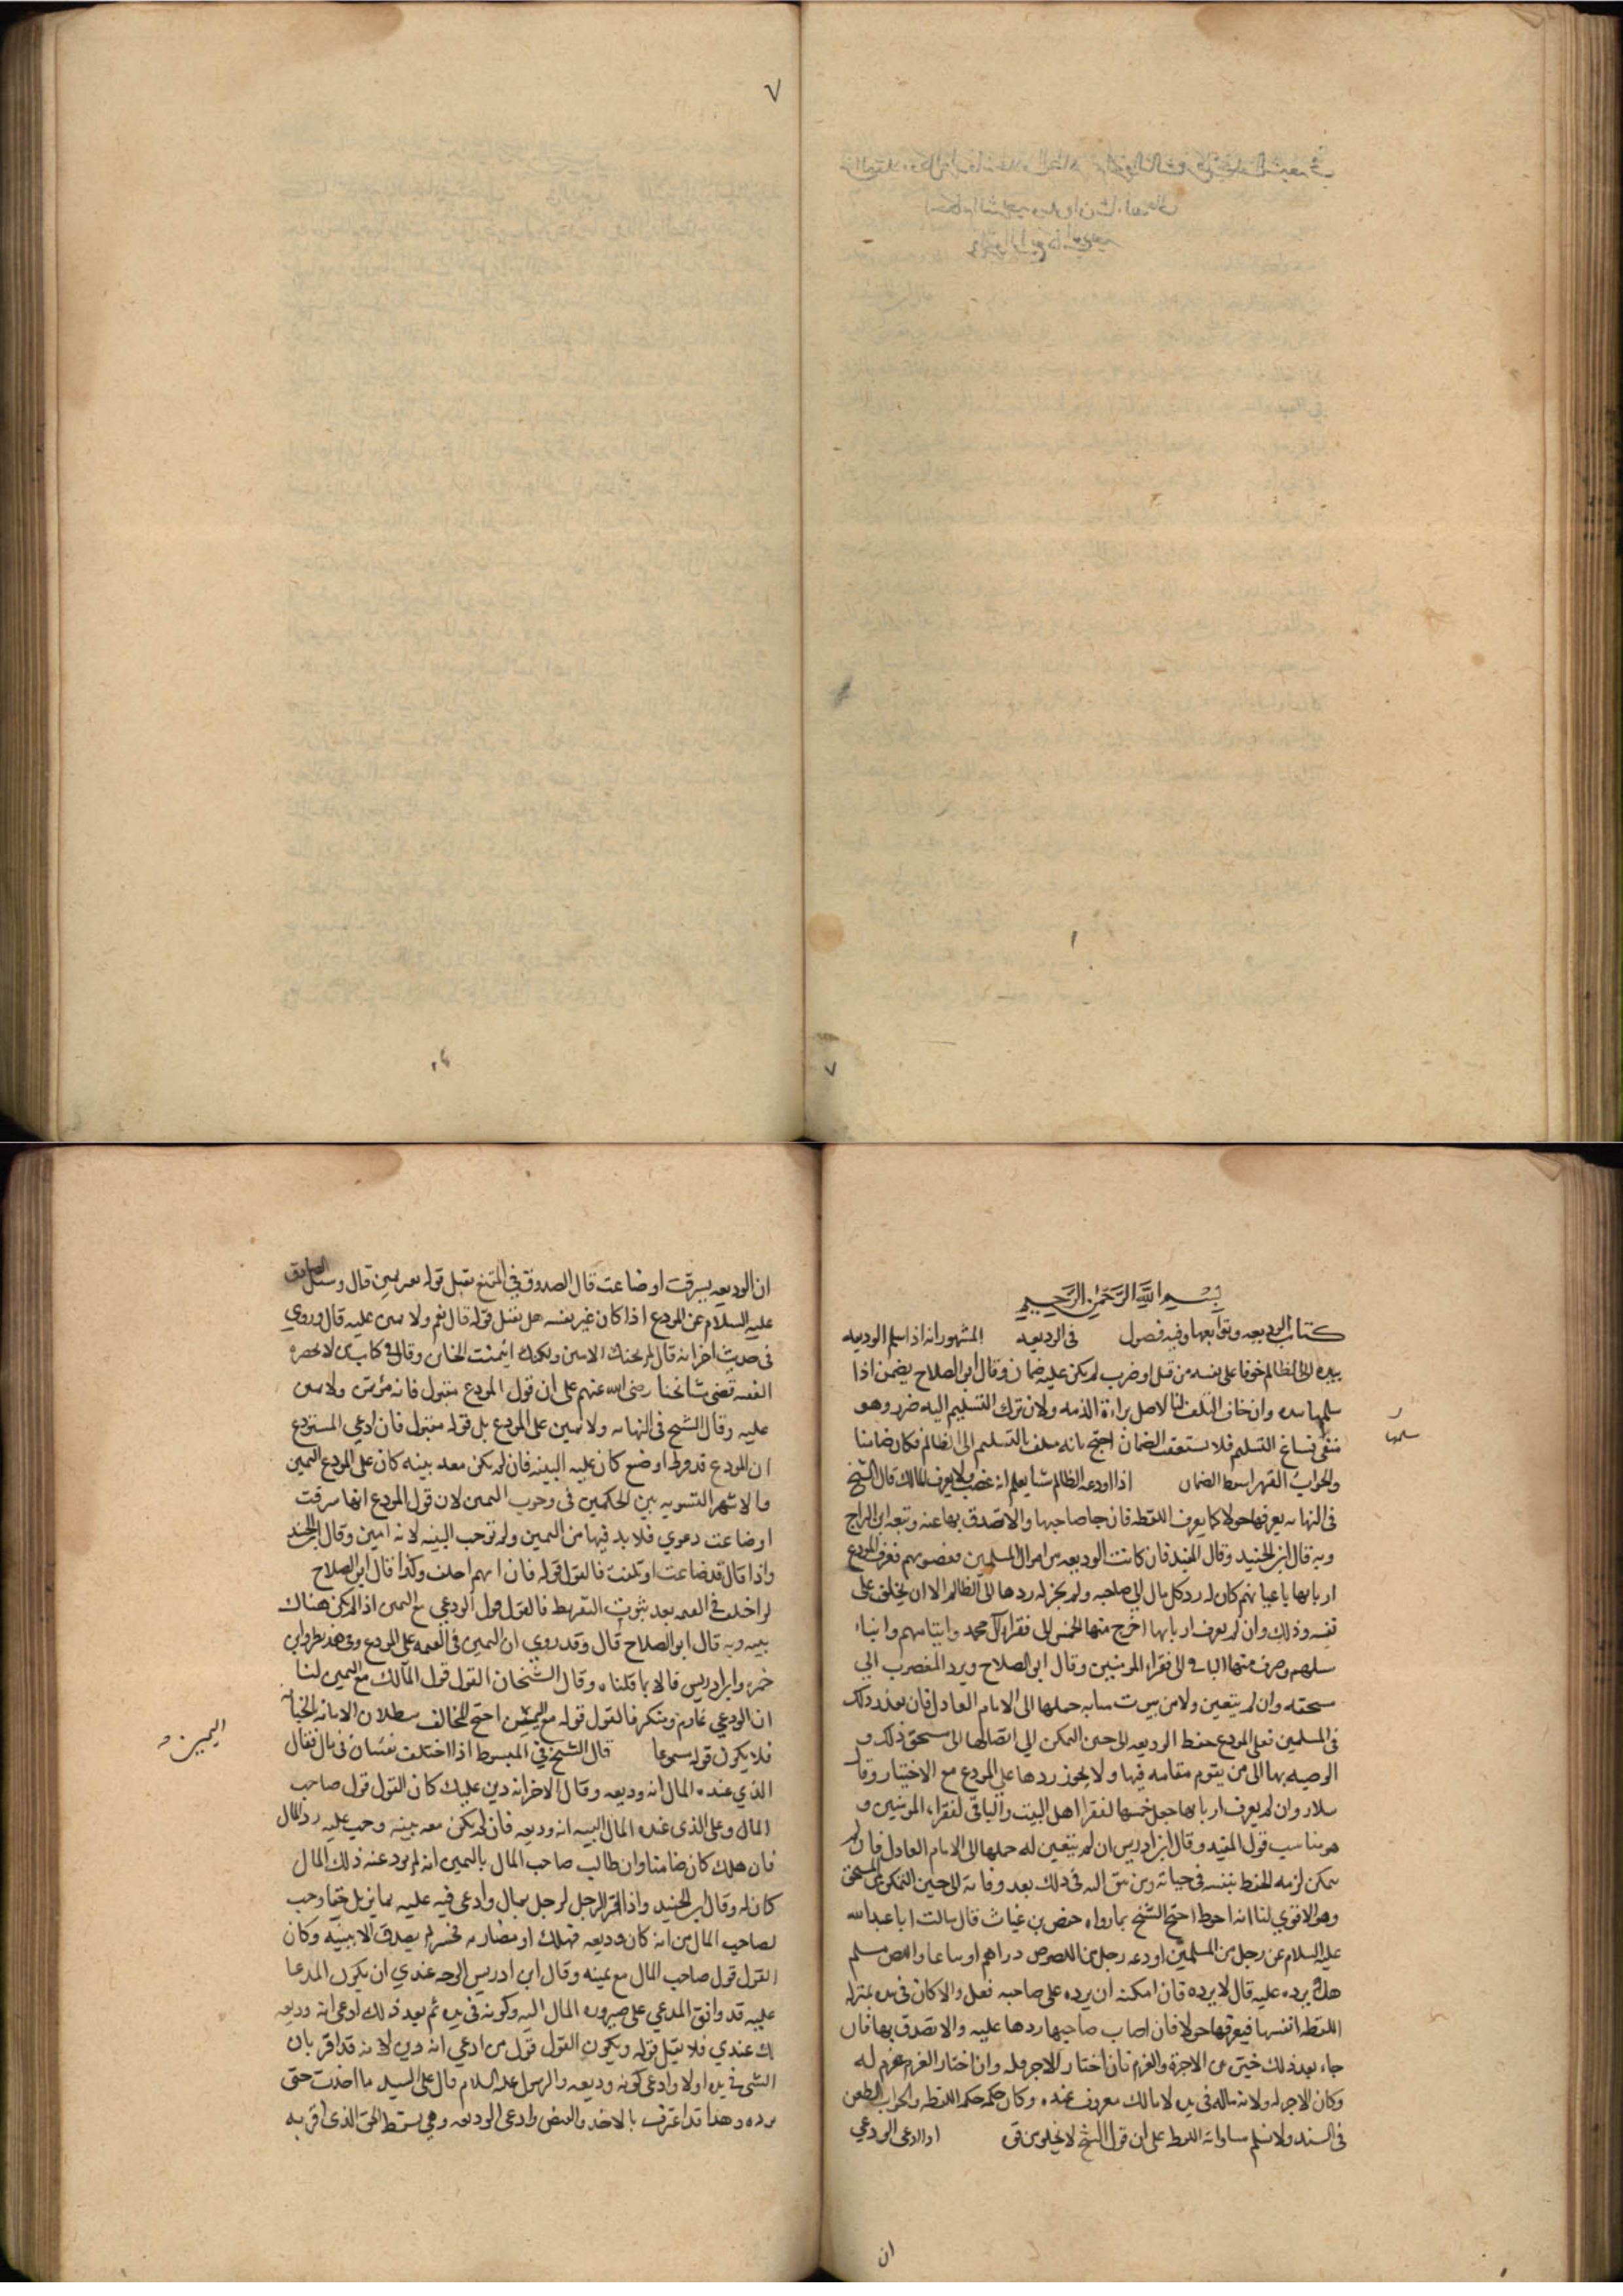 ٧
٧
بسم الله الرحمن الرحيم
كتاب الوديعه وتوابعها وفيه فصول في الوديعه المشهور انه اذا سلم الوديعه
بيده الى الظالم خوفا على نفسه من قتل او ضرب لم يكن عليه ضمان وقال ابو الصلاح يضمن اذا
سلمها بيده وان خاف التلف لنا الاصل براءة الذمه ولان ترك التسليم اليه ضرر وهو
منفى فساغ التسليم فلا يستعقب الضمان احتج بانه متلف بالتسليم الى الظالم فكان ضامنا
والجواب القهر اسقط الضمان اذا اودعه الظالم شيا يعلم انه غصب ولا يعرف المالك قال الشيخ
في النهايه يعرفها حولا كما يعرف اللقطه فان جا صاحبها والا تصدق بها عنه وتبعه ابن البراج
وبه قال ابن الجنيد وقال المفيد فان كانت الوديعه من اموال المسلمين وغصوبهم فعرف المودع
اربابها باعيانهم كان له رد كل مال الى صاحبه ولم يجز له ردها الى الظالم الا ان يخاف على
نفسه وذلك وان لم يعرف اربابها اخرج منها الخمس الى فقراء آل محمد وايتامهم وابناء
سبيلهم وصرف منها الباقي الى فقراء المومنين وقال ابو الصلاح ويرد المغصوب الى
مستحقه وان لم يتعين ولا من ينوب منابه حملها الى الامام العادل فان تعذر ذلك
في المسلمين فعلى المودع حفظ الوديعه الى حين التمكن الى ايصالها الى مستحق ذلك و
الوصيه بها الى من يقوم مقامه فيها ولا يجوز ردها على المودع مع الاختيار وقال
سلار وان لم يعرف اربابها جعل خمسها لفقرا اهل البيت والباقي لفقراء المومنين و
هو مناسب قول المفيد وقال ابن ادريس ان لم يتعين له حملها الى الامام العادل فان لم
يتمكن لزمه الحفظ بنفسه في حياته وبمن يثق اليه في ذلك بعد وفاته الى حين التمكن من المستحق
وهو الاقوي لنا انه احوط احتج الشيخ بما رواه حفص بن غياث قال سالت ابا عبد الله
عليه السلام عن رجل من المسلمين اودعه رجل من اللصوص دراهم او متاعا واللص مسلم
هل يرده عليه قال لا يرده فان امكنه ان يرده على صاحبه فعل والا كان في يده بمنزله
اللقطه فيعرفها حولا فان اصاب صاحبها ردها عليه والا تصدق بها فان
جاء بعد ذلك خير من الاجره والغرم فان اختار الاجر فله وان اختار الغرم غرم له
وكان الاجر له ولانه مال في يده لا مالك معروف عنده وكان حكمه حكم اللقطه والجواب الطعن
في السند ولا نسلم مساواته اللقطه على ان قول الشيخ لا يخلو من قوه اذا ادعى المودعي
سلمها
ان
ان الوديعه سرقت او ضاعت قال الصدوق في المقنع يقبل قوله بغير يمين قال وسئل الصادق
عليه السلام عن المودع اذا كان غير ثقه هل يقبل قوله قال نعم ولا يمين عليه قال وروي
في حديث اخر انه قال لم يخنك الامين ولكنك ائتمنت الخاين وقال في كتاب من لا يحضره
الفقيه قضى مشايخنا رضى الله عنهم على ان قول المودع مقبول فانه مؤتمن ولا يمين
عليه وقال الشيخ في النهايه ولا يمين على المودع بل قوله مقبول فان ادعي المستودع
ان المودع قد فرط او ضيع كان عليه البينه فان لم يكن معه بينه كان على المودع اليمين
والاشهر التسويه بين الحكمين في وجوب اليمين لان قول المودع انها سرقت
او ضاعت دعوي فلا بد فيها من اليمين ولم توجب البينه لانه امين وقال ابن الجنيد
واذا قال قد ضاعت او تلفت فالقول قوله فان اتهم احلف وكذا قال ابو الصلاح
لو اختلفا في القيمه بعد ثبوت التفريط فالقول قول المودعي مع اليمين اذا لم تكن هناك
بينه وبه قال ابو الصلاح قال وقد روي ان اليمين في القيمه على المودع وفي هذا نظر وابن
حمزه وابن ادريس قالا بما قلناه وقال الشيخان القول قول المالك مع اليمين لنا
ان المودعي غارم ومنكر فالقول قوله مع اليمين احتج المخالف ببطلان الامانه بالخيانه
فلا يكون قوله مسموعا قال الشيخ في المبسوط اذا اختلف نفسان في مال فقال
الذي عنده المال انه وديعه وقال الاخر انه دين عليك كان القول قول صاحب
المال وعلى الذى عنده المال البينه انه وديعه فان لم يكن معه بينه وجب عليه رد المال
فان هلك كان ضامنا وان طالب صاحب المال باليمين انه لم يودعه ذلك المال
كان له وقال ابن الجنيد واذا اقر الرجل لرجل بمال وادعى فيه عليه بما يزيل حقا وجب
لصاحب المال من انه كان وديعه فهلك او مضاربه فخسر لم يصدق الا ببينه وكان
القول قول صاحب المال مع يمينه وقال ابن ادريس الوجه عندي ان يكون المدعا
عليه قد وافق المدعي على صيروره المال اليه وكونه في يده ثم بعد ذلك ادعى انه وديعه
لك عندي فلا يقبل قوله ويكون القول قول من ادعى انه دين لانه قد اقر بان
الشي في يده اولا وادعى كونه وديعه والرسول عليه السلام قال على اليد ما اخذت حتى
ترده وهذا قد اعترف بالاخذ والقبض وادعى الوديعه وهي تسقط الحق الذى اقر به
اليمين